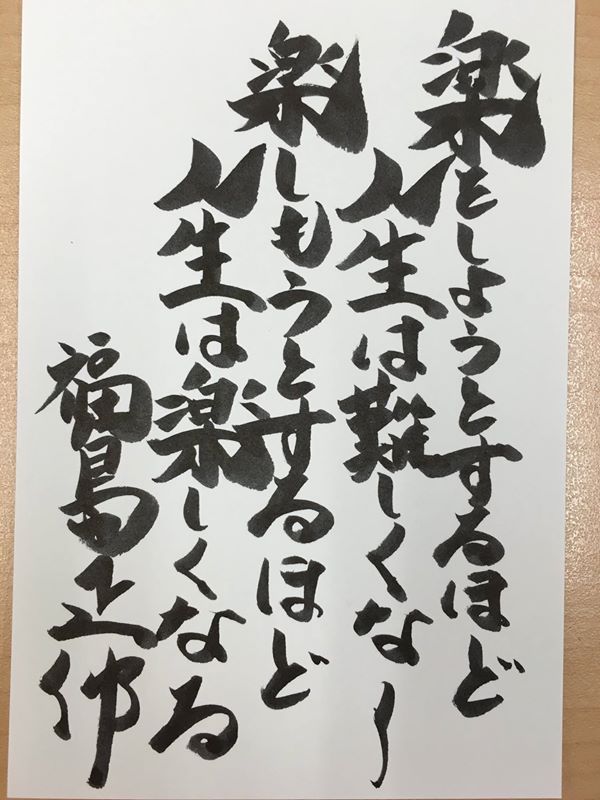 楽をしようとするほど
人生は難しくなり
楽しもうとするほど
人生は楽しくなる
福島正伸